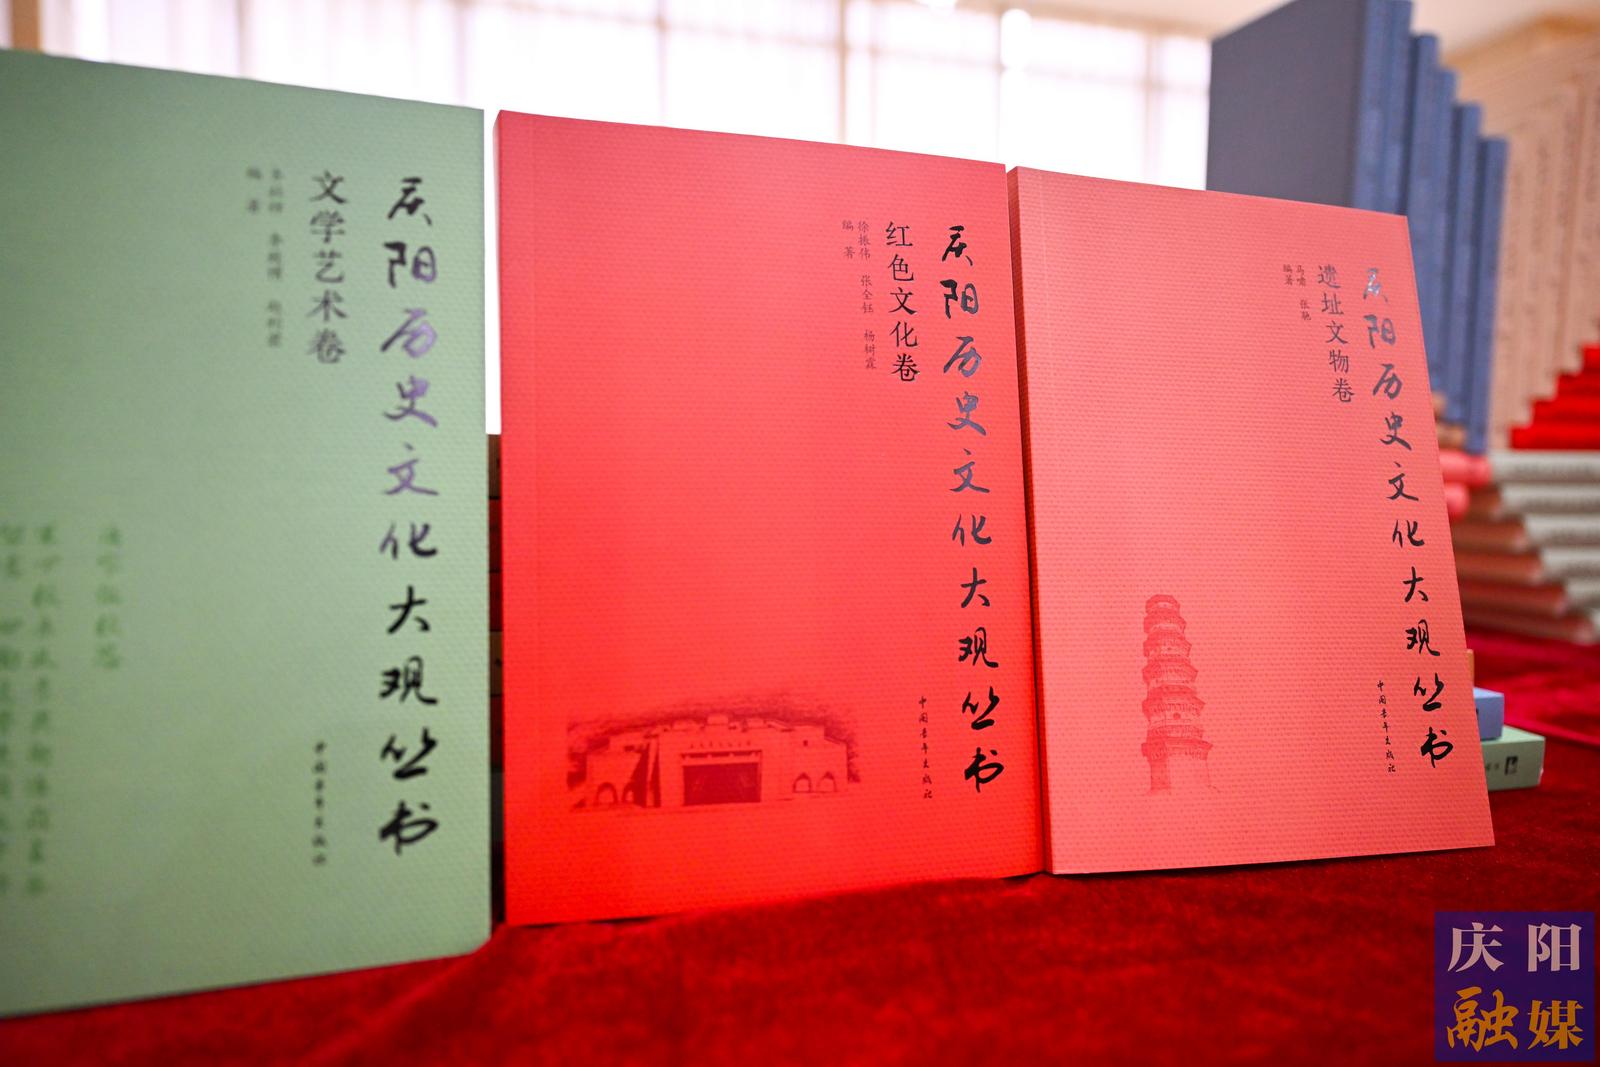 庆阳历史文化大观丛书
文学艺术卷
编著
中国青年出版社
庆阳历史文化大观丛书
红色文化卷
徐振伟 张全钰 杨树霖
编著
中国青年出版社
庆阳历史文化大观丛书
遗址文物卷
马啸 张驰
编著
中国青年出版社
庆阳
融媒